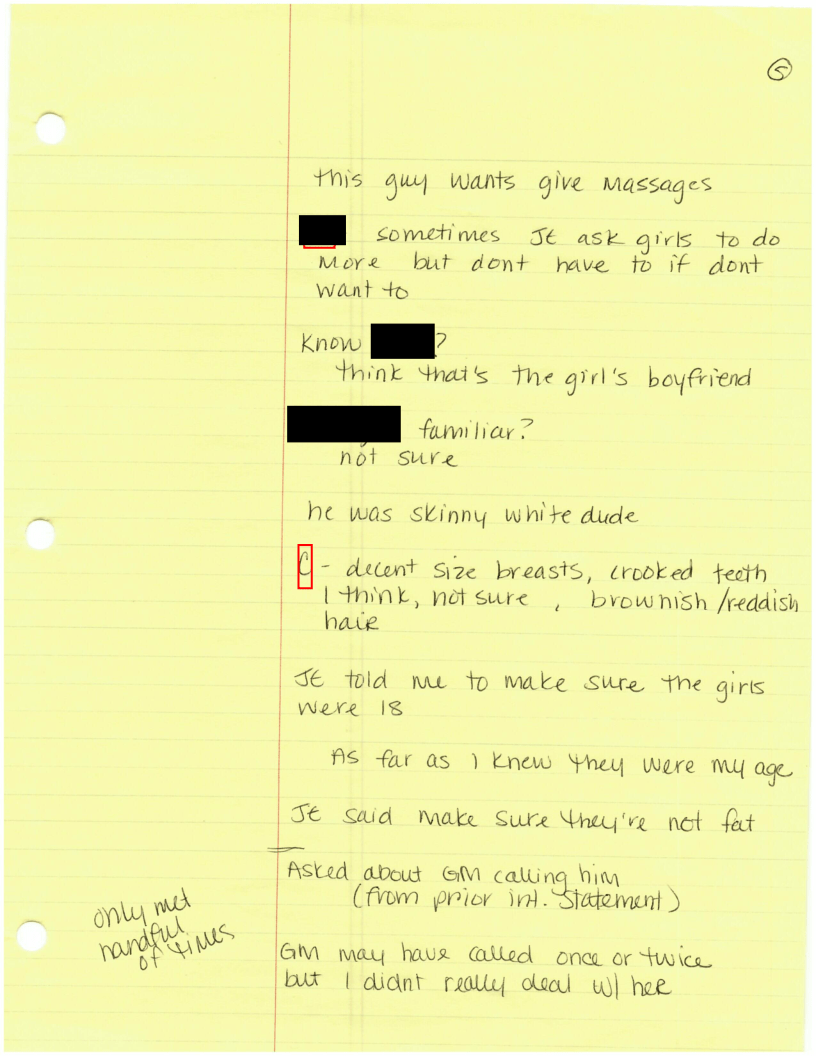 5
this guy wants give massages
sometimes JE ask girls to do
more but dont have to if dont
want to
Know ?
think that's the girl's boyfriend
familiar?
not sure
he was skinny white dude
C - decent size breasts, crooked teeth
I think, not sure , brownish/reddish
hair
JE told me to make sure the girls
were 18
As far as I knew they were my age
JE said make sure they're not fat
Asked about GM calling him
(from prior int. statement)
only met
handful
of times
GM may have called once or twice
but I didnt really deal w/ her